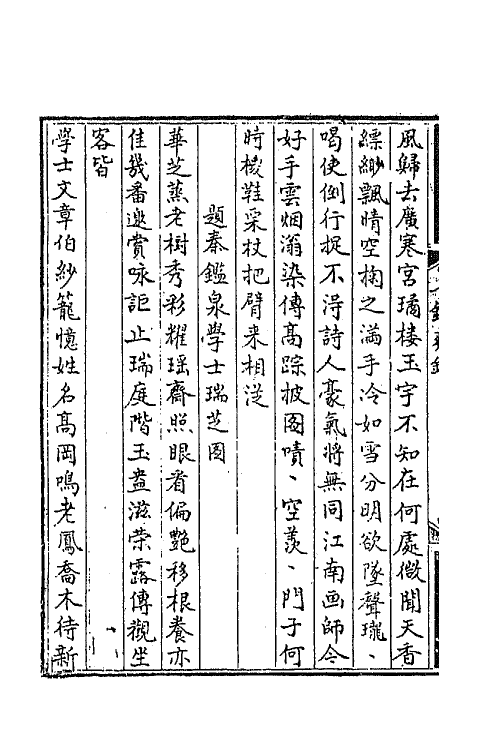 風歸去廣寒宮璚樓玉宇不知在何處微聞天香
縹緲飄晴空掬之滿手冷如雪分明欲墜聲瓏、
喝使倒行捉不淂詩人豪氣將無同江南画師今
好手雲烟滃染傳髙踪披圖嘖、空羡、門子何
時椶鞋采杖把臂来相從
題秦鑑泉學士瑞芝圖
華芝蒸老樹秀彩耀瑶齋照眼看偏艷移根養亦
佳幾番邀賞咏詎止瑞庭階玉盎滋荣露傳觀坐
客皆
學士文章伯紗籠憶姓名髙岡鳴老鳳喬木待新